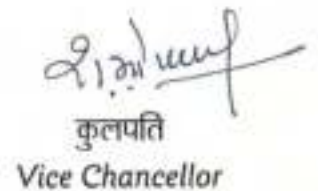 कुलपति
Vice Chancellor